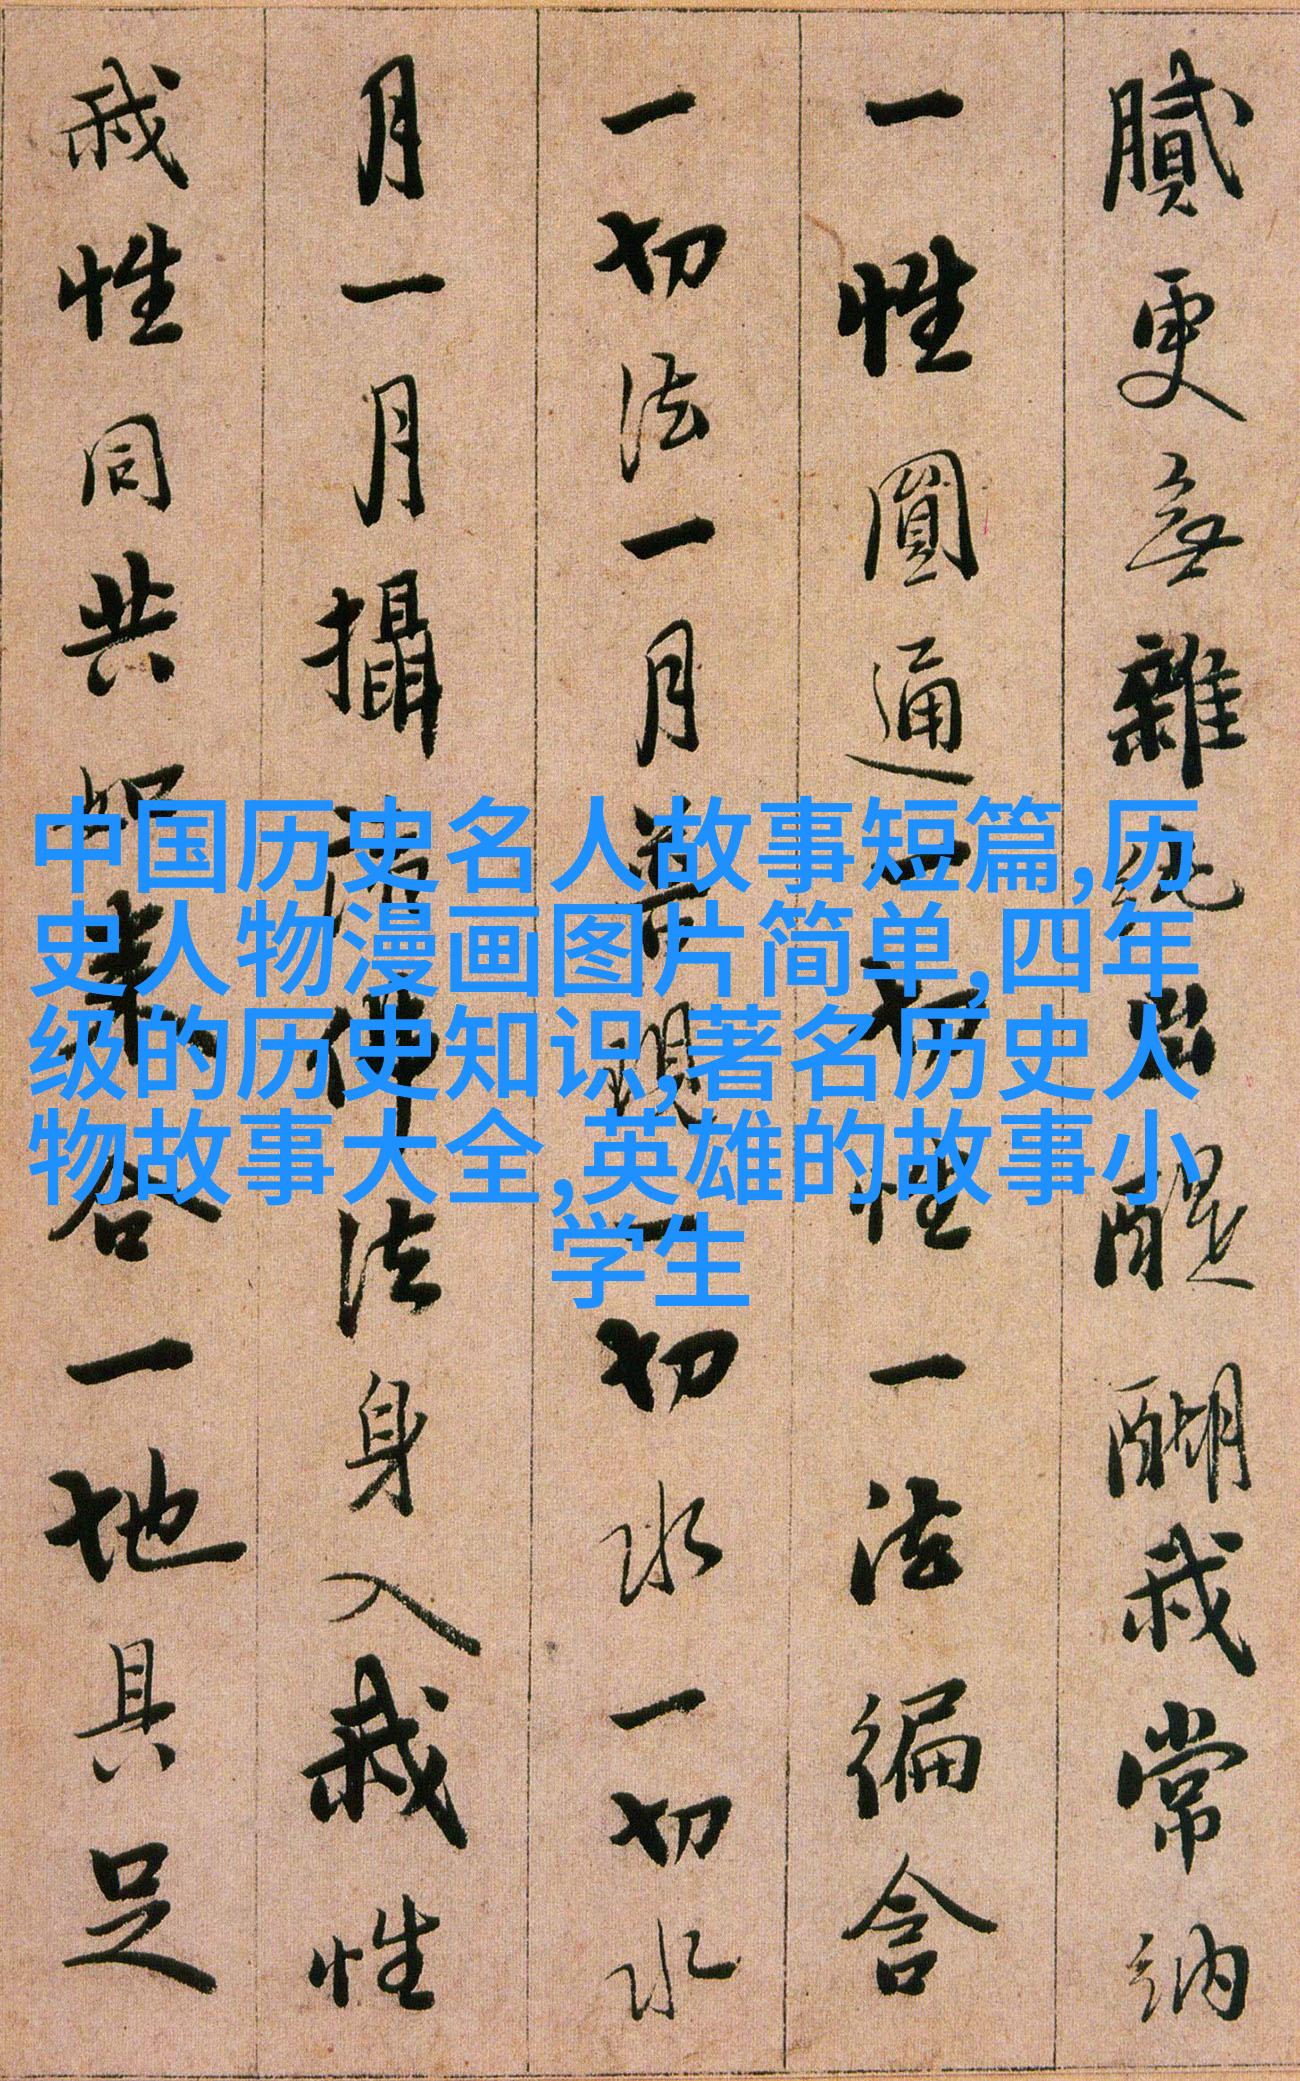 膩更無雜純出醍醐我常納
一性圓通一切性一法徧含
一切法一月普現一切水一切水
月一月攝諸佛法身入我性
我性同共如来合一地具足
中国历史名人故事短篇,历
史人物漫画图片简单,四年
级的历史知识,著名历史人
物故事大全,英雄的故事小
学生